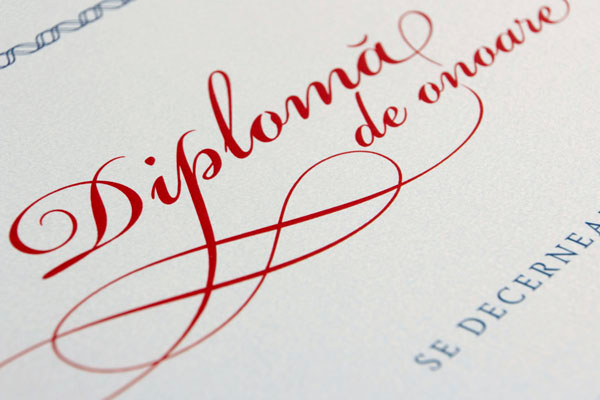 Diplomă
de onoare
SE DECERNEA